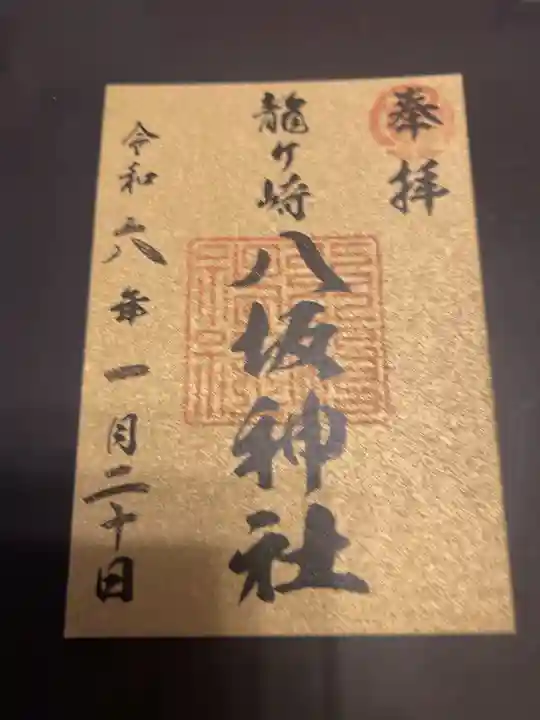 奉拝
龍ケ崎
八坂神社
令和六年一月二十日